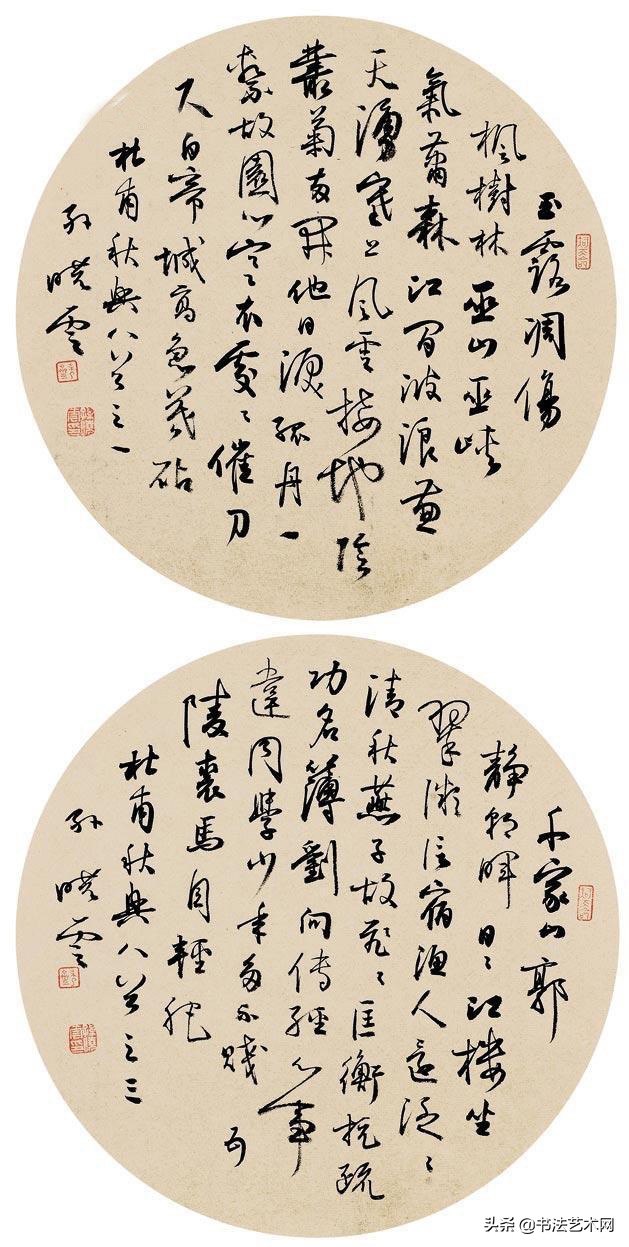 玉露凋傷
楓樹林巫山巫峽
氣蕭森江間波浪兼
天湧塞上風雲接地陰
叢菊兩開他日淚孤舟一
繫故園心寒衣處〻催刀
尺白帝城高急暮砧
杜甫秋興八首之一
孫曉雲
千家山郭
靜朝暉日〻江樓坐
翠微信宿漁人還泛〻
清秋燕子故飛〻匡衡抗疏
功名薄劉向傳經心事
違同學少年多不賤五
陵裘馬自輕肥
杜甫秋興八首之三
孫曉雲
头条 @书法艺术网